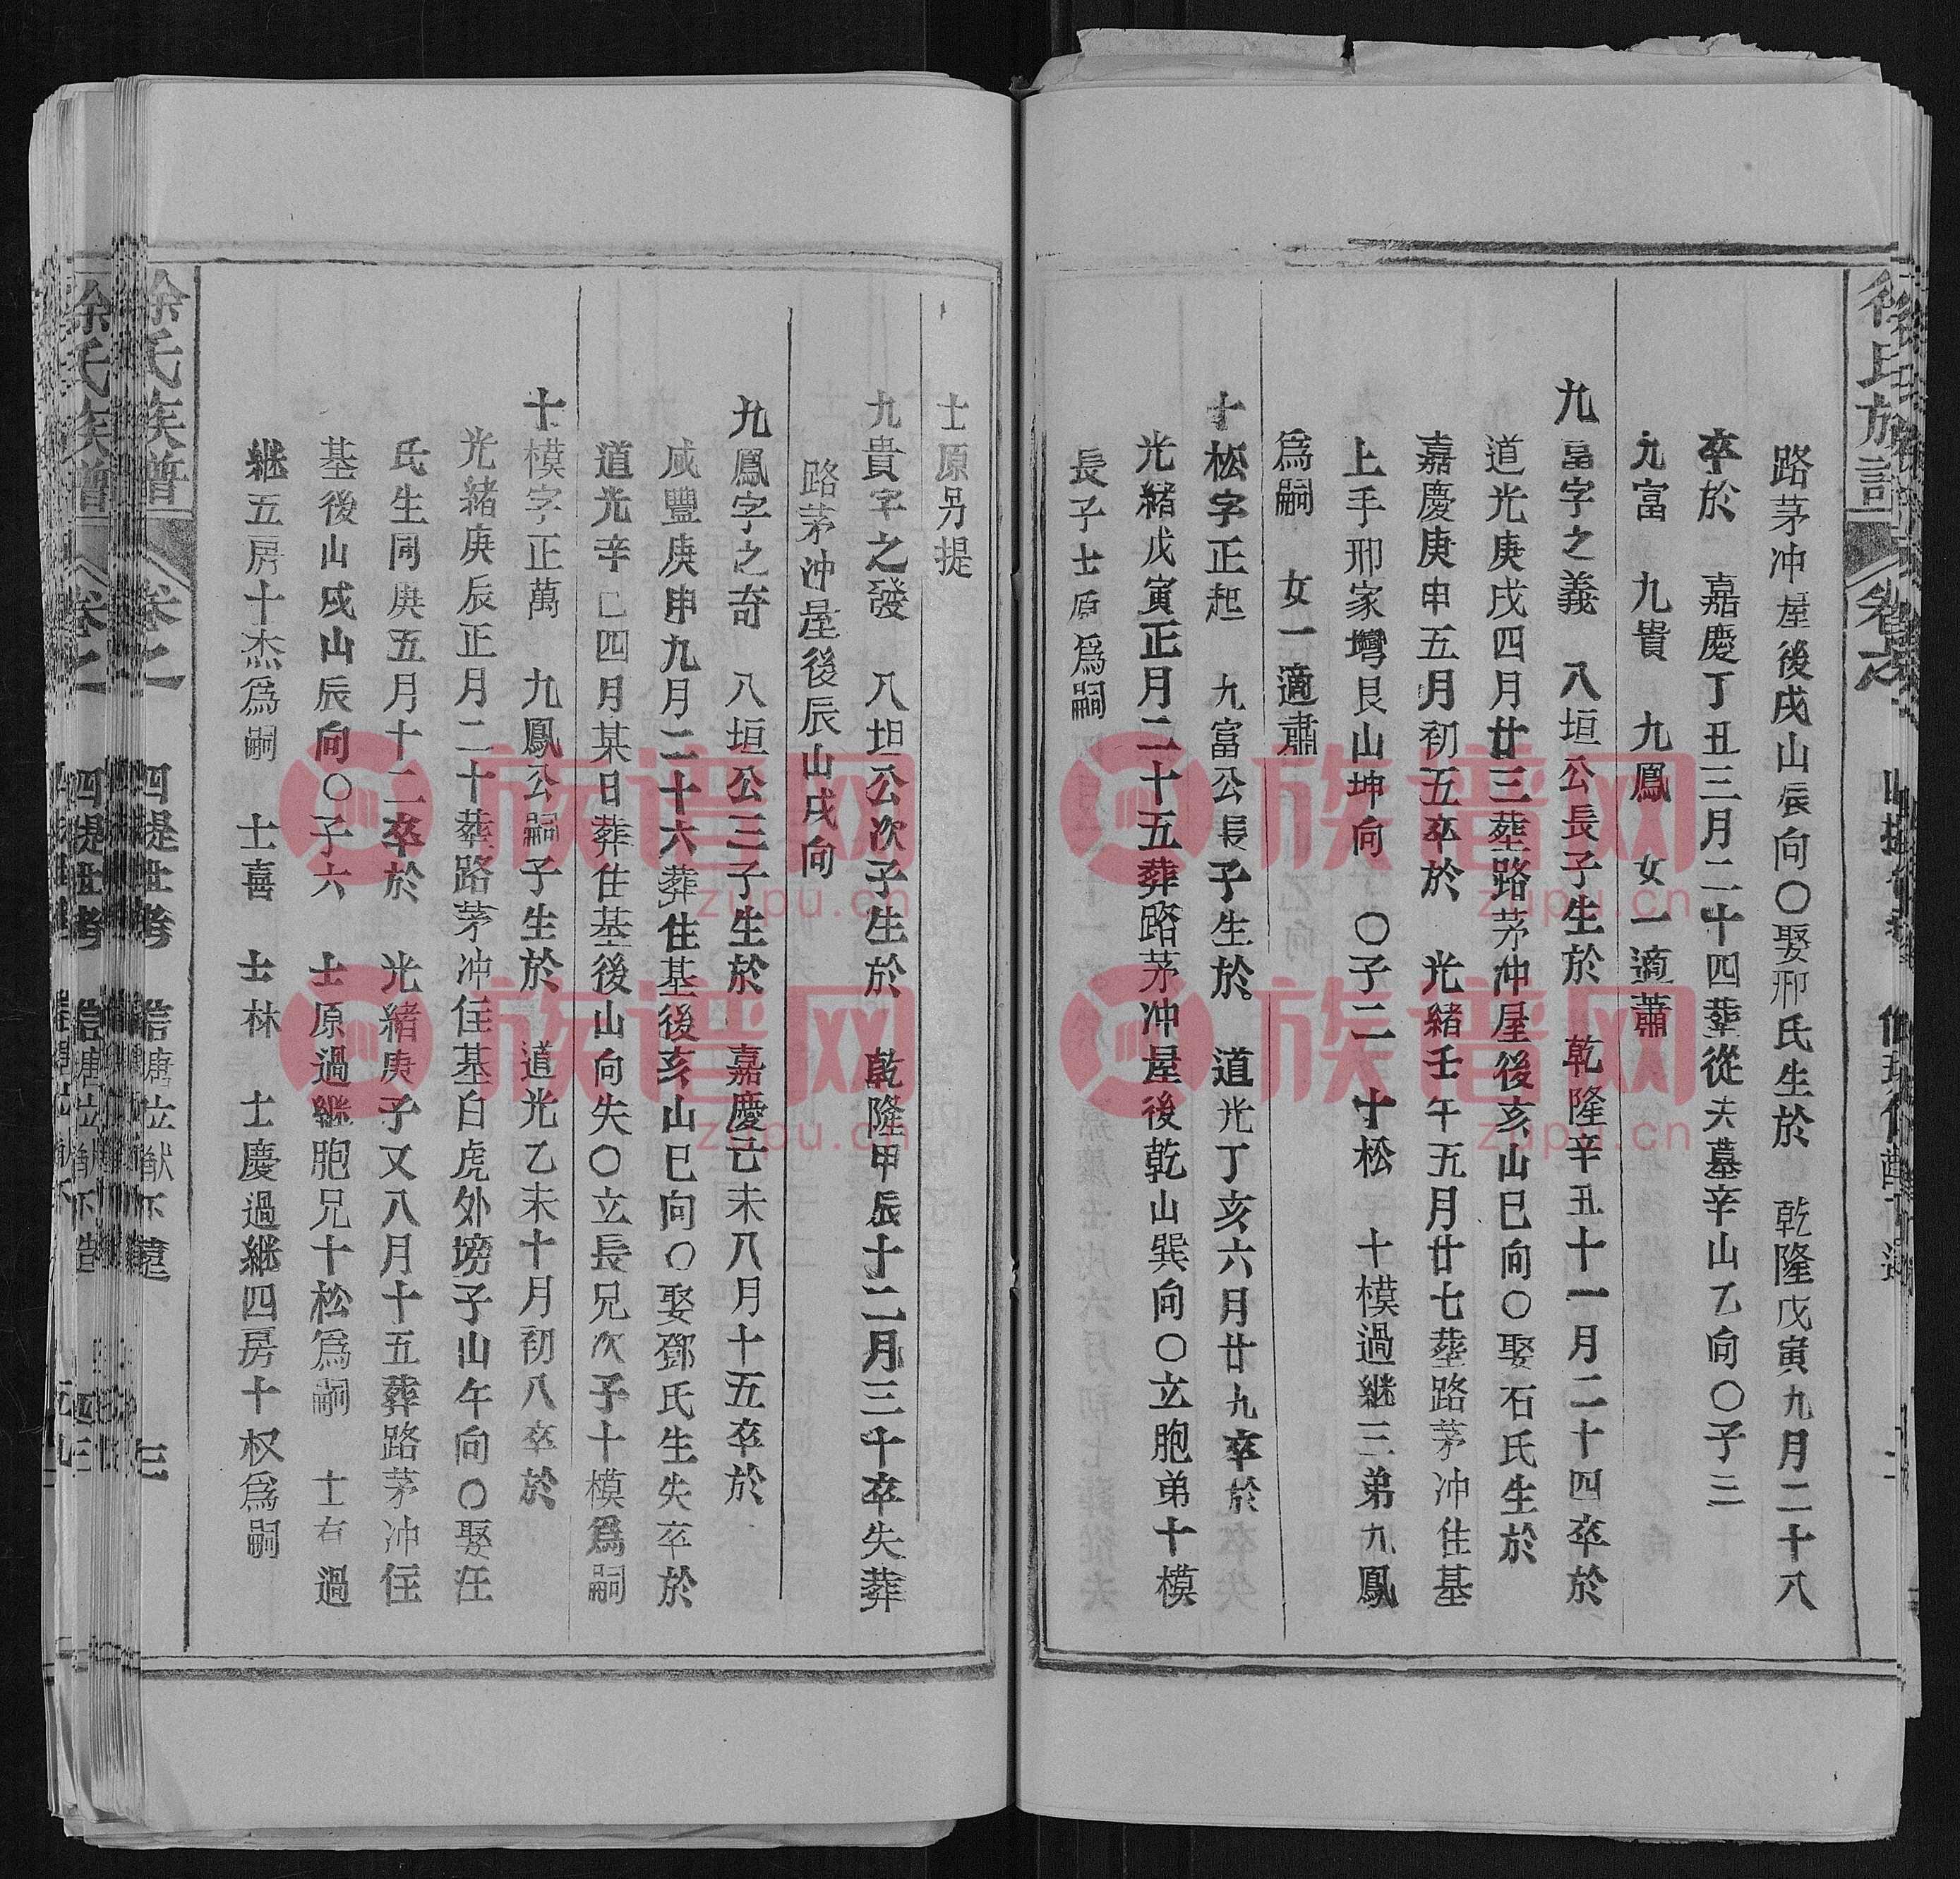 路茅冲屋後戌山辰向〇娶邢氏生於 乾隆戊寅九月二十八
卒於 嘉慶丁丑三月二十四塟從夫墓辛山乙向〇子三
九富 九貴 九鳳 女一適蕭
九富字之義 八垣公長子生於 乾隆辛丑十一月二十四卒於
道光庚戌四月廿三塟路茅冲屋後亥山巳向〇娶石氏生於
嘉慶庚申五月初五卒於 光緒壬午五月廿七塟路茅冲住基
上手邢家塆艮山坤向 〇子二 十松 十模過継三弟九鳳
爲嗣 女一適肅
十松字正起 九富公長子生於 道光丁亥六月廿九卒於
光緒戊寅正月二十五葬路茅冲屋後乾山巽向〇立胞弟十模
長子士原爲嗣
士原另提
九貴字之發 八坦公次子生於 乾隆甲辰十二月三十卒失葬
路茅冲屋後辰山戌向
九鳳字之奇 八垣公三子生於 嘉慶己未八月十五卒於
咸豐庚申九月二十六葬住基後亥山巳向〇娶鄧氏生失卒於
道光辛巳四月某日葬住基後山向失〇立長兄次子十模爲嗣
十模字正萬 九鳳公嗣子生於 道光乙未十月初八卒於
光緒庚辰正月二十塟路茅冲住基白虎外塝子山午向〇娶汪
氏生同庚五月十二卒於 光緒庚子又八月十五葬路茅冲住
基後山戌山辰向〇子六 士原過継胞兄十松爲嗣 士右過
継五房十杰爲嗣 士喜 士林 士慶過継四房十权爲嗣
徐氏族譜 卷之 四提世考 三
族谱网
zupu.cn
族谱网
zupu.cn
族谱网
zupu.cn
族谱网
zupu.cn